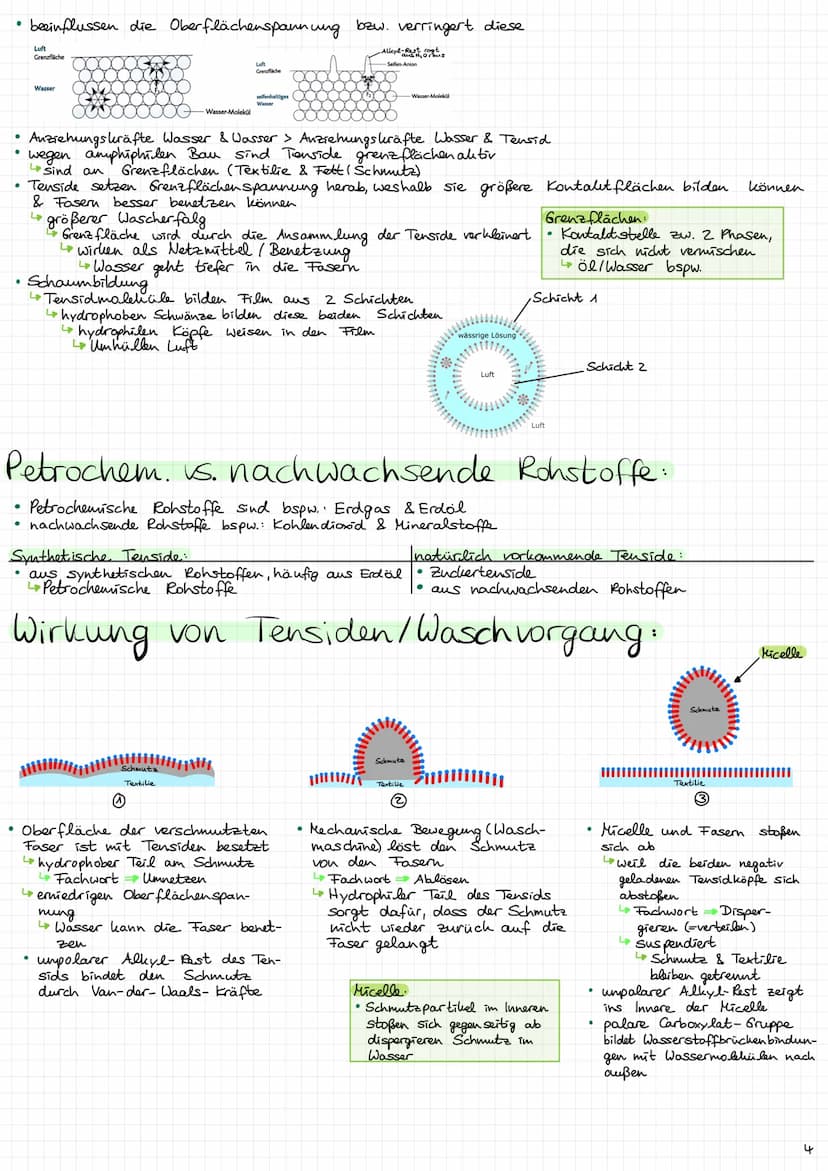 • beeinflussen die Oberflächenspannung bzw. verringert diese
Luft
Grenzfläche
Wasser
Wasser-Molekül
Luft
Grenzfläche
seifenhaltiges
Wasser
Alkyl-Rest ragt
aus H₂O raus
Seifen-Anion
Wasser-Molekül
• Anziehungskräfte Wasser & Wasser > Anziehungskräfte Wasser & Tensid
• wegen amphiphilen Bau sind Tenside grenzflächenaktiv
↳ sind an Grenzflächen (Textilie & Fett/Schmutz)
• Tenside setzen Grenzflächenspannung herab, weshalb sie größere Kontaktflächen bilden können
& Fasern besser benetzen können
↳ größerer Wascherfolg
↳ Grenzfläche wird durch die Ansammlung der Tenside verkleinert
↳ wirken als Netzmittel / Benetzung
↳ Wasser geht tiefer in die Fasern
Grenzflächen:
• Kontaktstelle zw. 2 Phasen,
die sich nicht vermischen
↳ Öl/Wasser bspw.
• Schaumbildung
↳ Tensidmoleküle bilden Film aus 2 Schichten
↳ hydrophoben Schwänze bilden diese beiden Schichten
↳ hydrophilen Köpfe weisen in den Film
↳ Umhüllen Luft
Schicht 1
wässrige Lösung
Luft
Schicht 2
Luft
Petrochem. vs. nachwachsende Rohstoffe:
• Petrochemische Rohstoffe sind bspw.: Erdgas & Erdöl
• nachwachsende Rohstoffe bspw.: Kohlendioxid & Mineralstoffe
Synthetische Tenside:
• aus synthetischen Rohstoffen, häufig aus Erdöl
↳ Petrochemische Rohstoffe
natürlich vorkommende Tenside:
• Zuckertenside
• aus nachwachsenden Rohstoffen
Wirkung von Tensiden/Waschvorgang:
Micelle
Schmutz
Textilie
①
Schmutz
Textilie
②
Schmutz
Textilie
③
• Oberfläche der verschmutzten
Faser ist mit Tensiden besetzt
↳ hydrophober Teil am Schmutz
↳ Fachwort ⇒ Umnetzen
↳ erniedrigen Oberflächenspan-
nung
↳ Wasser kann die Faser benet-
zen
• unpolarer Alkyl-Rest des Ten-
sids bindet den Schmutz
durch Van-der-Waals-Kräfte
• Mechanische Bewegung (Wasch-
maschine) löst den Schmutz
von den Fasern
↳ Fachwort ⇒ Ablösen
↳ Hydrophiler Teil des Tensids
sorgt dafür, dass der Schmutz
nicht wieder zurück auf die
Faser gelangt
Micelle:
• Schmutzpartikel im Inneren
stoßen sich gegenseitig ab
dispergieren Schmutz im
Wasser
• Micelle und Fasern stoßen
sich ab
↳ weil die beiden negativ
geladenen Tensidköpfe sich
abstoßen
↳ Fachwort ⇒ Disper-
gieren (=verteilen)
↳ suspendiert
↳ Schmutz & Textilie
bleiben getrennt
• unpolarer Alkyl-Rest zeigt
ins Innere der Micelle
• polare Carboxylat-Gruppe
bildet Wasserstoffbrückenbindun-
gen mit Wassermolekülen nach
außen
4